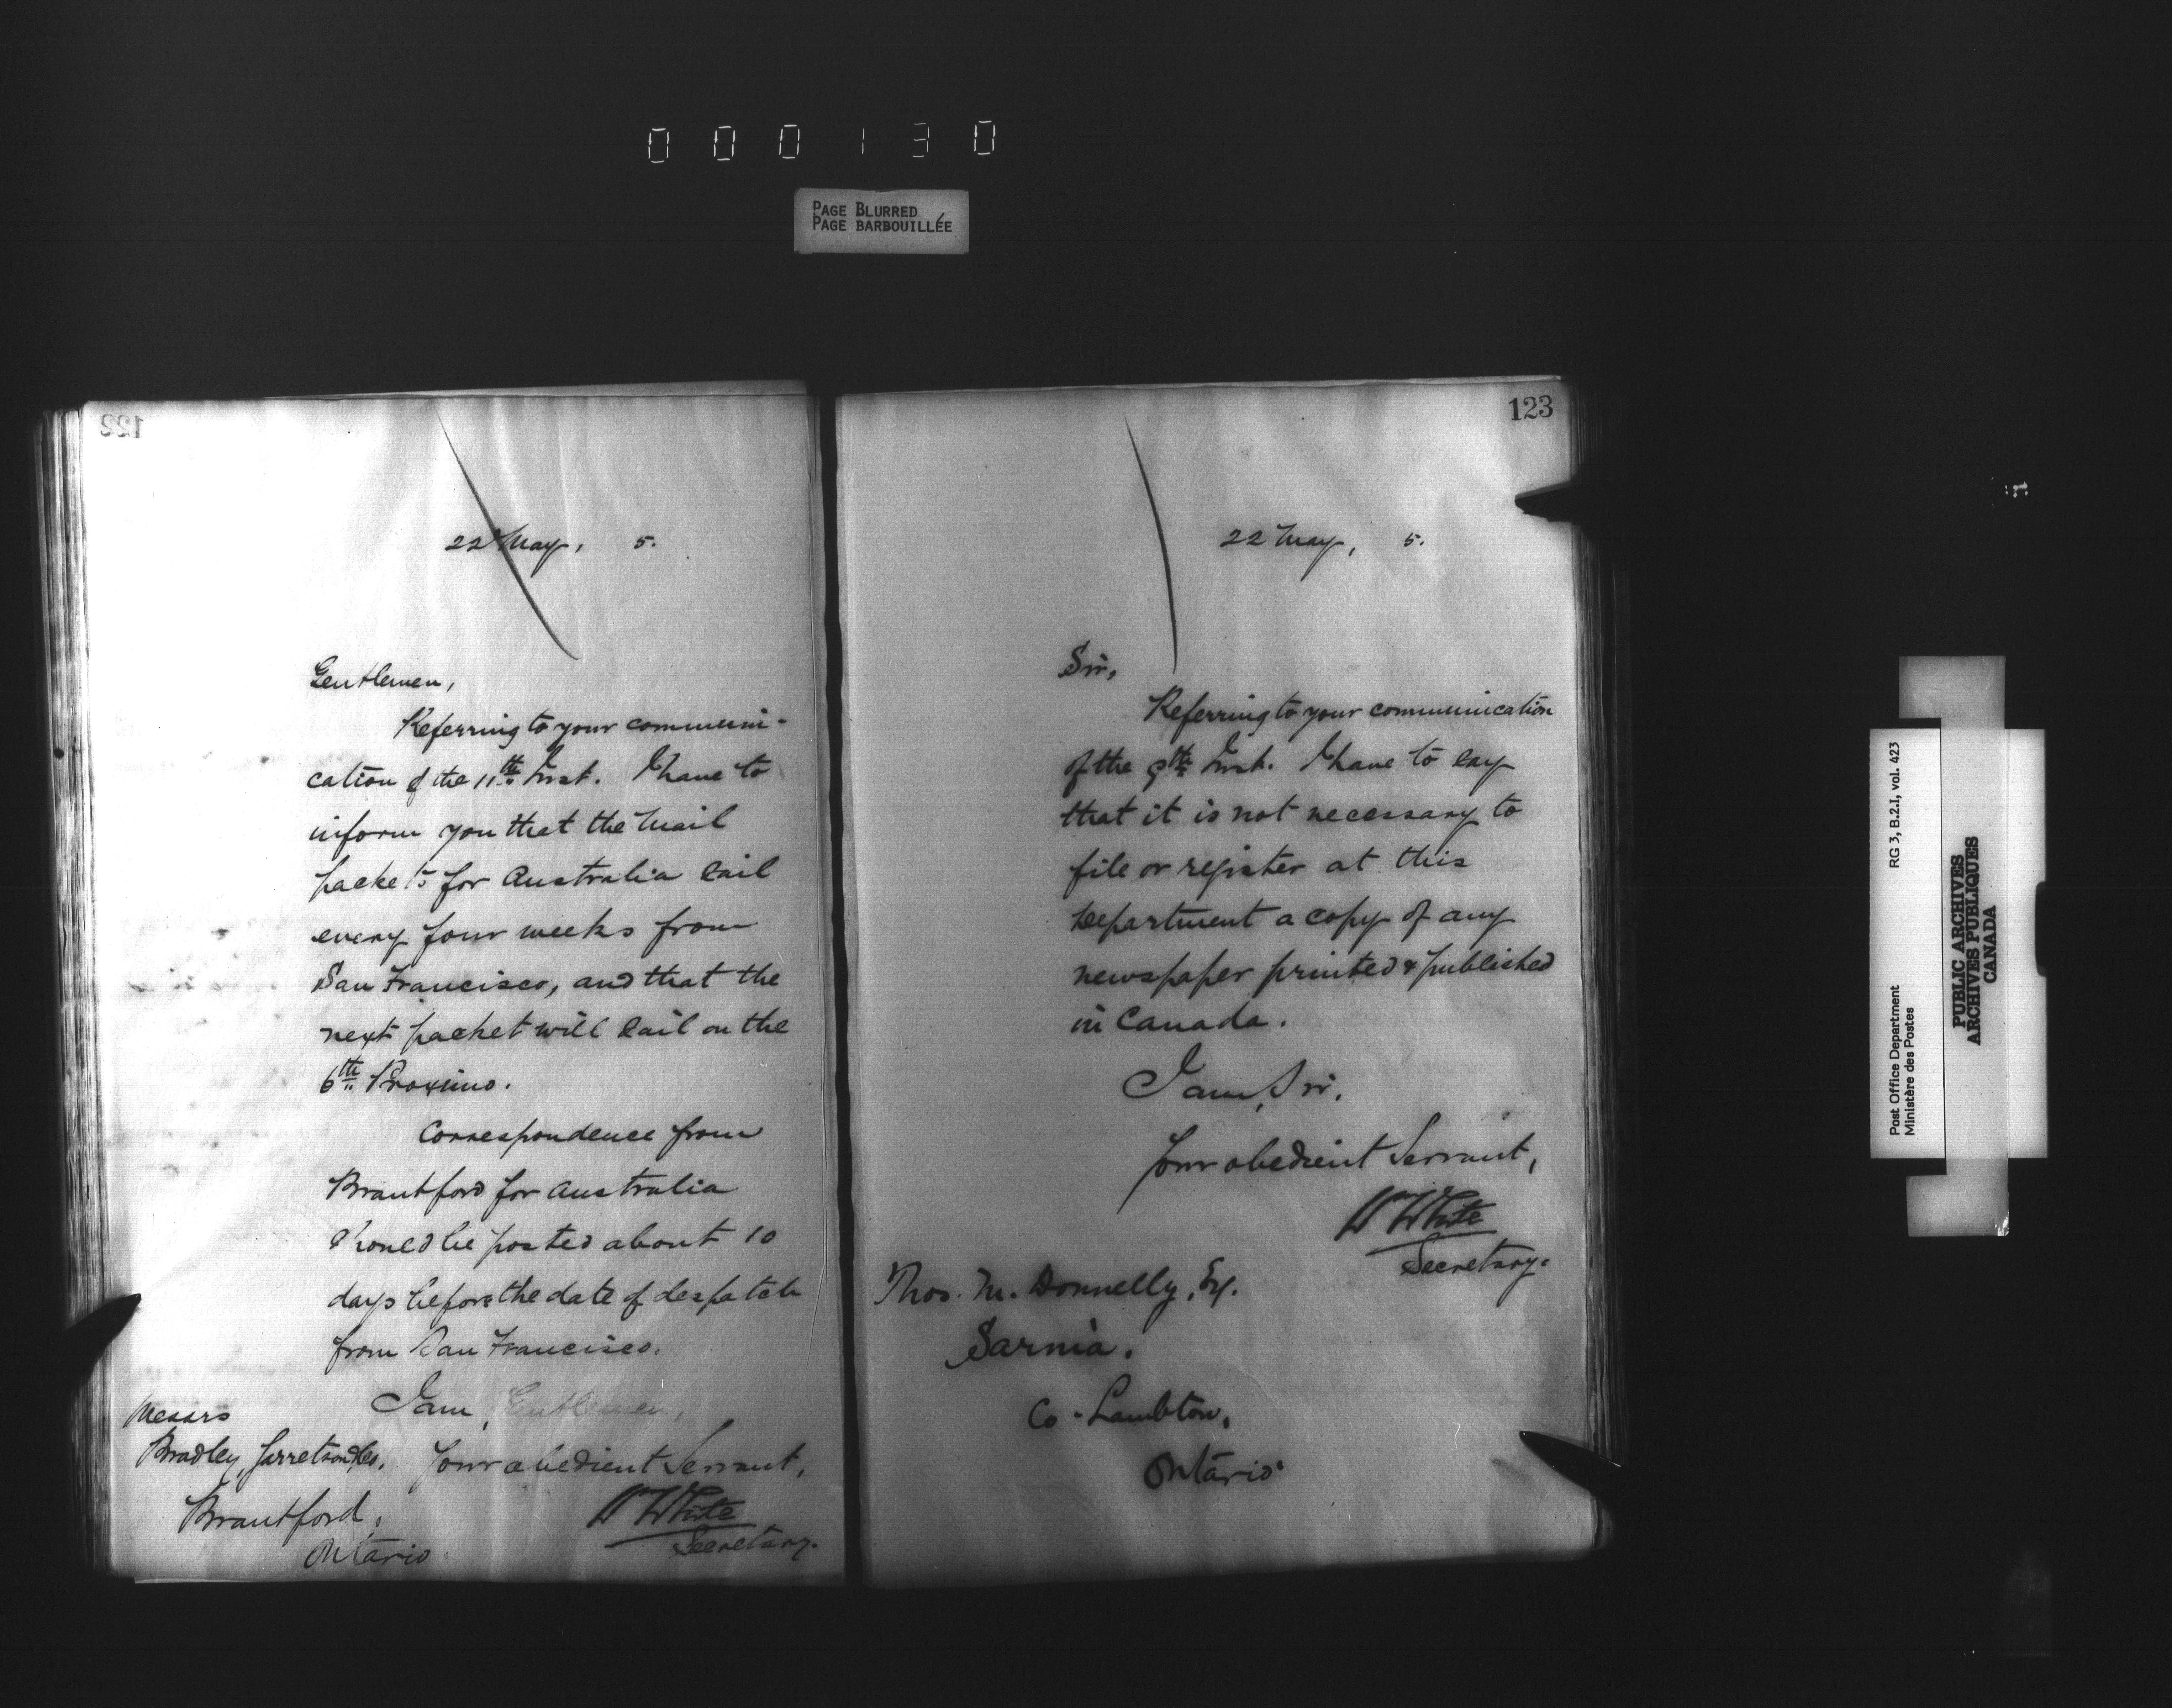 000130
PAGE BLURRED
PAGE BARBOUILLÉE
122
22 May, 5.
Gentlemen,
Referring to your communi-
cation of the 11th Inst. I have to
inform you that the Mail
packets for Australia sail
every four weeks from
San Francisco, and that the
next packet will sail on the
6th Proximo.
Correspondence from
Brantford for Australia
should be posted about 10
days before the date of despatch
from San Francisco.
I am, Gentlemen,
Your obedient Servant,
Wm White
Secretary.
Messrs
Bradley, Garretson & Co.
Brantford,
Ontario
123
22 May, 5.
Sir,
Referring to your communication
of the 9th Inst. I have to say
that it is not necessary to
file or register at this
Department a copy of any
newspaper printed & published
in Canada.
I am, Sir,
Your obedient Servant,
Wm White
Secretary.
Thos. M. Donnelly, Esq.
Sarnia.
Co. Lambton,
Ontario
Post Office Department
Ministère des Postes
RG 3, B.2.I, vol. 423
PUBLIC ARCHIVES
ARCHIVES PUBLIQUES
CANADA